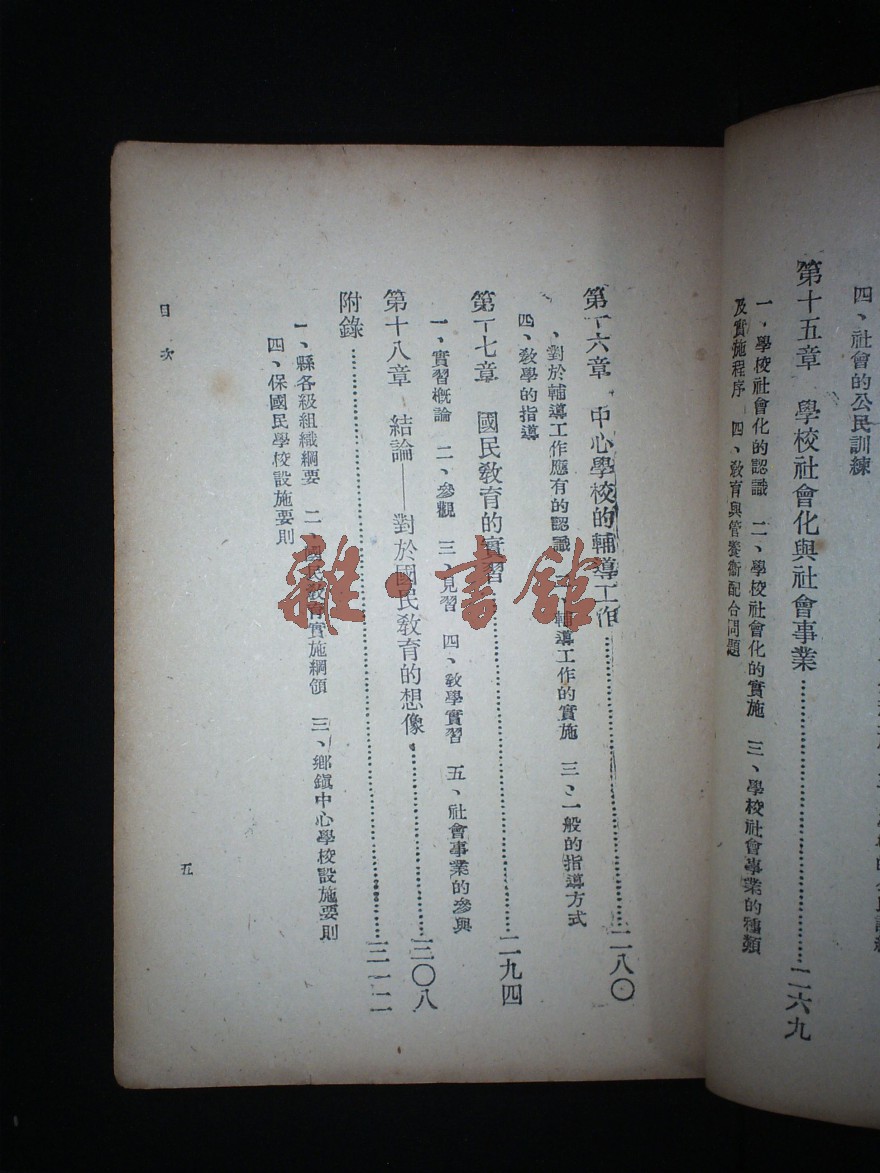 四、社會的公民訓練
第十五章 學校社會化與社會事業……二六九
一、學校社會化的認識 二、學校社會化的實施 三、學校社會事業的種類
及實施程序 四、敎育與管養衞配合問題
第十六章 中心學校的輔導工作……二八〇
、對於輔導工作應有的認識 二、輔導工作的實施 三、一般的指導方式
四、敎學的指導
第十七章 國民敎育的實習……二九四
一、實習槪論 二、參觀 三、見習 四、敎學實習 五、社會事業的參與
第十八章 結論——對於國民敎育的想像……三〇八
附錄……三一二
一、縣各級組織綱要 二、國民敎育實施綱領 三、鄉鎭中心學校設施要則
四、保國民學校設施要則
目次
五
雜·書館